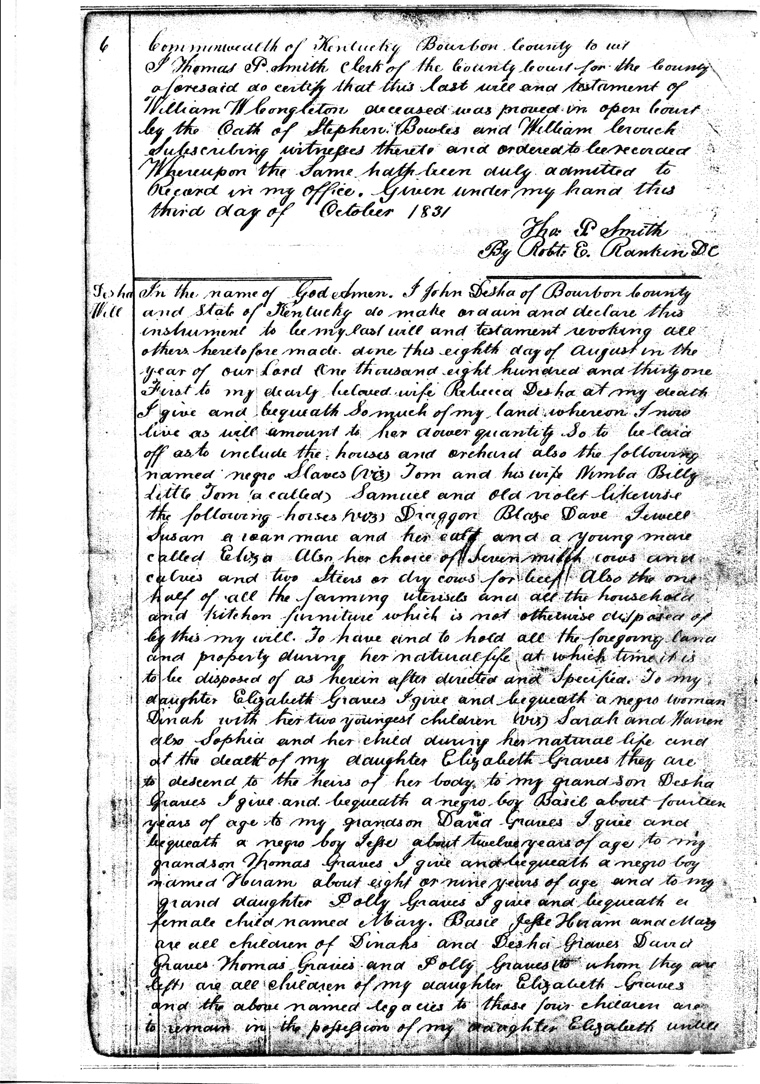 6
Commonwealth of Kentucky Bourbon County to wit
I Thomas P. Smith Clerk of the County Court for the County
aforesaid do certify that this last will and testament of
William W Congleton deceased was proved in open Court
by the Oath of Stephen Bowles and William Crouch
Subscribing witnesses thereto and ordered to be recorded
Whereupon the Same hath been duly admitted to
Record in my office. Given under my hand this
third day of October 1831
Tho P Smith
By Robt E. Rankin DC
Desha
Will
In the name of God Amen. I John Desha of Bourbon County
and State of Kentucky do make ordain and declare this
instrument to be my last will and testament revoking all
others heretofore made. done this eighth day of August in the
year of our Lord One thousand eight hundred and thirty one
First to my dearly beloved wife Rebecca Desha at my death
I give and bequeath So much of my land whereon I now
live as will amount to her dower quantity So to be laid
off as to include the houses and orchard also the following
named negro Slaves (viz) Tom and his wife Nimba Billy
Little Tom (a called) Samuel and old violet likewise
the following horses (viz) Draggon Blaze Dave Jewell
Susan a roan mare and her calf and a young mare
called Eliza Also her choice of Seven milch cows and
calves and two Steers or dry cows for beef Also the one
half of all the farming utensils and all the household
and kitchen furniture which is not otherwise disposed of
by this my will. To have and to hold all the foregoing land
and property during her natural life at which time it is
to be disposed of as herein after directed and Specified. To my
daughter Elizabeth Graves I give and bequeath a negro woman
Dinah with her two youngest children (viz) Sarah and Warren
also Sophia and her child during her natural life and
at the death of my daughter Elizabeth Graves they are
to descend to the heirs of her body. to my grandson Desha
Graves I give and bequeath a negro boy Basil about fourteen
years of age to my grandson David Graves I give and
bequeath a negro boy Jesse about twelve years of age to my
grandson Thomas Graves I give and bequeath a negro boy
named Hiram about eight or nine years of age and to my
grand daughter Polly Graves I give and bequeath a
female child named Mary. Basil Jesse Hiram and Mary
are all children of Dinahs and Desha Graves David
Graves Thomas Graves and Polly Graves (to whom they are
left) are all children of my daughter Elizabeth Graves
and the above named legacies to those four children are
to remain in the possession of my daughter Elizabeth untill